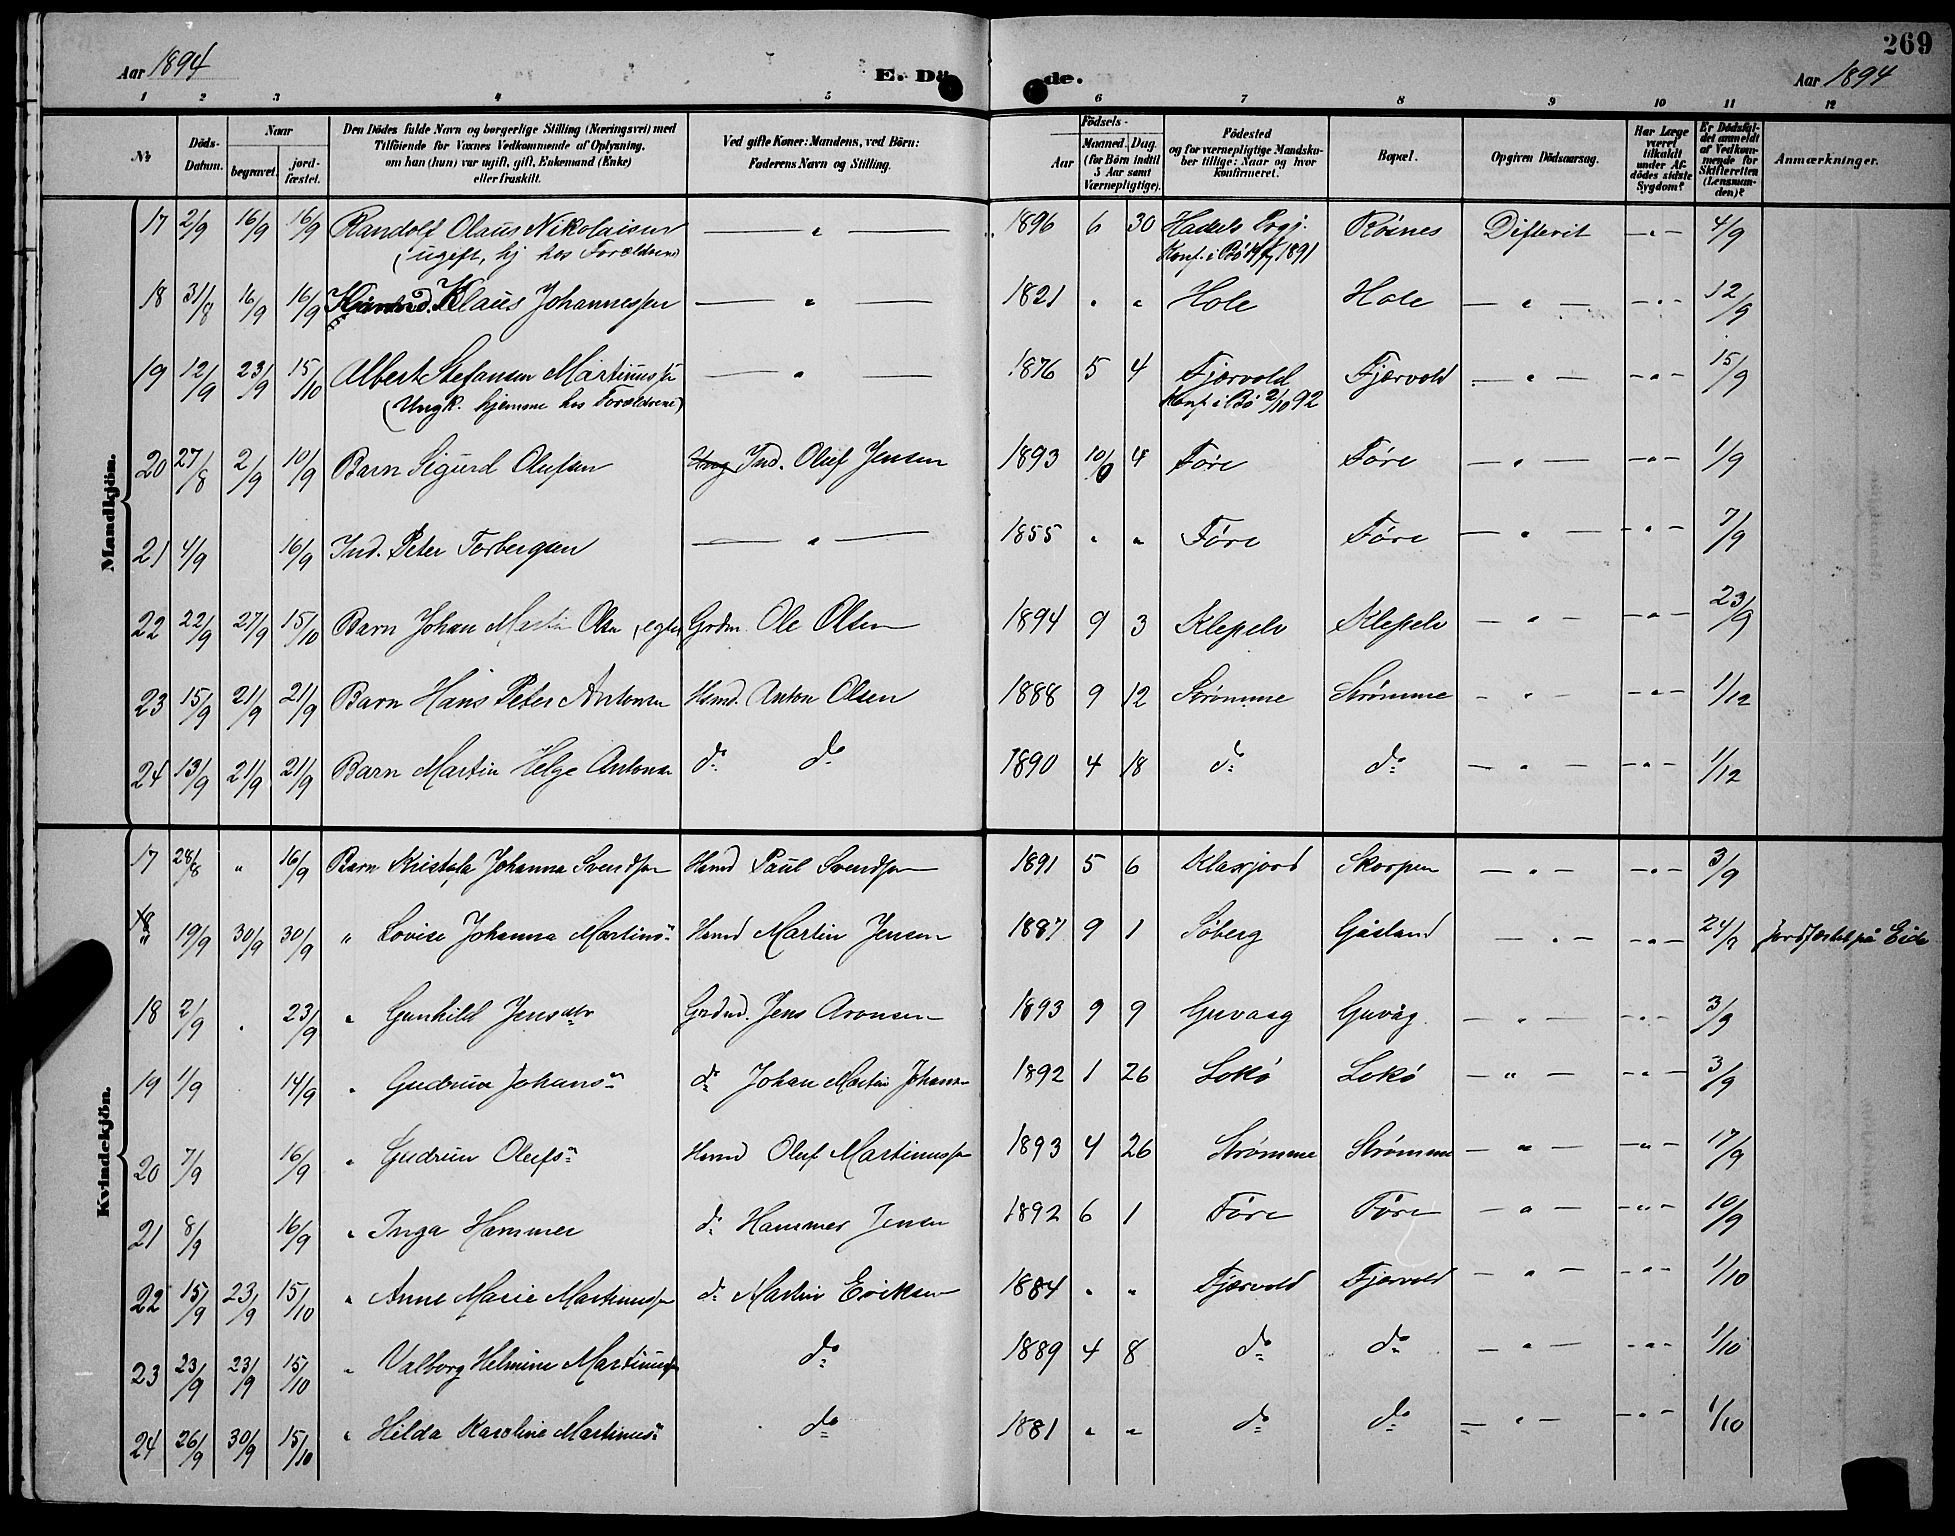 269
Aar 1894 E. Dö de. Aar 1894
1 2 3 4 5 6 7 8 9 10 11 12
No
Döds-Datum.
Naar
begravet.
jord-fæstet.
Den Dödes fulde Navn og borgerlige Stilling (Næringsvei) med
Tilföiende for Voxnes Vedkommende af Oplysning,
om han (hun) var ugift, gift, Enkemand (Enke)
eller fraskilt.
Ved gifte Koner: Mandens, ved Börn:
Faderens Navn og Stilling.
Födsels-
Aar
Maaned. Dag.
(for Börn indtil
5 Aar samt
Værnepligtige).
Födested
og for værnepligtige Mandska-
ber tillige: Naar og hvor
konfirmeret.
Bopæl.
Opgiven Dödsaarsag.
Har Læge
været
tilkaldt
under Af-
dödes sidste
Sygdom?
Er Dödsfal-
det anmeldt
af Vedkom-
mende for
Skifteretten
(Lensman-
den)?
Anmærkninger.
Mandkjön.
17 2/9 16/9 16/9 Randolf Olaus Nikolaisen — " — 1896 6 30 Hadsels Prgj. Røsnes Difterit — " — 4/9
(ugift, hj hos Forældrene) Konf. i Bø 1891
18 31/8 16/9 16/9 Klaus Johannessen — " — 1821 " " Hole Hole — " — — " — 12/9
19 12/9 23/9 15/10 Albert Stefansen Martinussen — " — 1876 5 4 Fjærvold Fjærvold — " — — " — 15/9
(Ungk. hjemme hos Forældrene) Konf i Bø 2/10 92
20 27/8 2/9 10/9 Barn Sigurd Olufsen Ind. Oluf Jensen 1893 10 4 Føre Føre — " — — " — 1/9
21 4/9 16/9 Ind. Peter Torbergsen — " — 1855 " " Føre Føre — " — — " — 7/9
22 22/9 27/9 15/10 Barn Johan Martin Olsen, egte Grdm. Ole Olsen 1894 9 3 Klepels Klepels — " — — " — 23/9
23 15/9 21/9 21/9 Barn Hans Peter Antonsen Hsmd. Anton Olsen 1888 9 12 Strømme Strømme — " — — " — 1/12
24 13/9 21/9 21/9 Barn Martin Helge Antonsen do do 1890 4 18 do do — " — — " — 1/12
Kvindekjön.
17 28/8 " 16/9 Barn Johanna Svendsen Hsmd Paul Svendsen 1891 5 6 Klaxjord Skorpen — " — — " — 3/9
" 19/9 30/9 30/9 " Lovise Johanna Martinsn Hsmd Martin Jensen 1887 9 1 Søberg Gåsland — " — — " — 24/9 Jordfæstet på Eide
18 2/9 " 23/9 " Gunhild Jensdtr Grdmd. Jens Aronsen 1893 9 9 Guvaag Guvåg — " — — " — 3/9
19 1/9 14/9 " Gudrun Johansn do Johan Martin Johansen 1892 1 26 Lokø Lokø — " — — " — 3/9
20 7/9 16/9 " Gudrun Olufsn Hsmd Oluf Martinussen 1893 4 26 Strømme Strømme — " — — " — 17/9
21 8/9 16/9 " Inga Hammer do Hammer Jensen 1892 6 1 Føre Føre — " — — " — 10/9
22 15/9 23/9 15/10 " Anne Marie Martinussen do Martin Eriksen 1884 " " Fjærvold Fjærvold — " — — " — 1/10
23 23/9 23/9 15/10 " Valborg Helmine Martinussen do 1889 4 8 do do — " — — " — 1/10
24 26/9 30/9 15/10 " Hilda Karoline Martinusn do 1881 " " do do — " — — " — 1/10